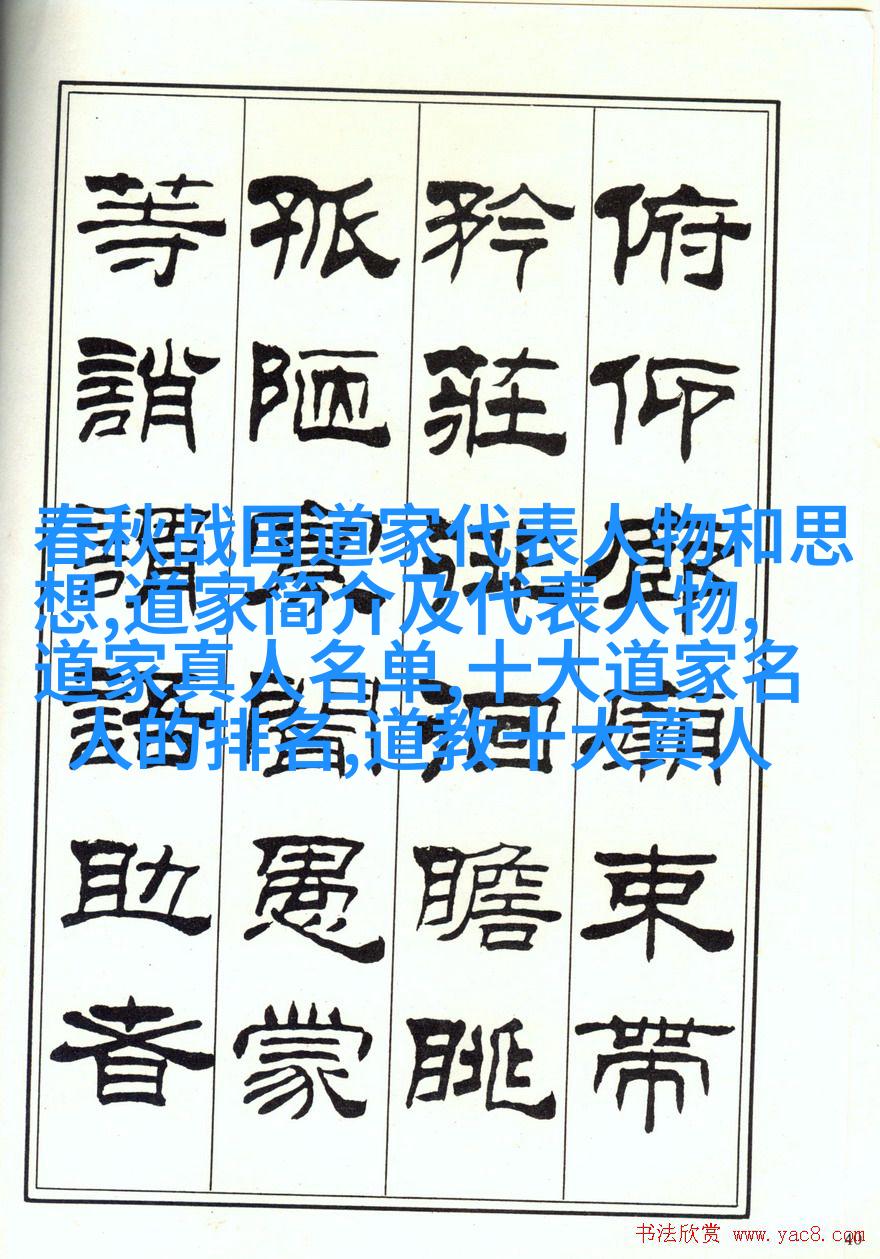 俯仰廊廟束帶
矜莊徘徊瞻眺
孤陋寡聞愚蒙
等誚謂語助者
春秋战国道家代表人物和思
想,道家简介及代表人物,
道家真人名单,十大道家名
人的排名,道教十大真人
书法欣赏 www.yac8.com
40